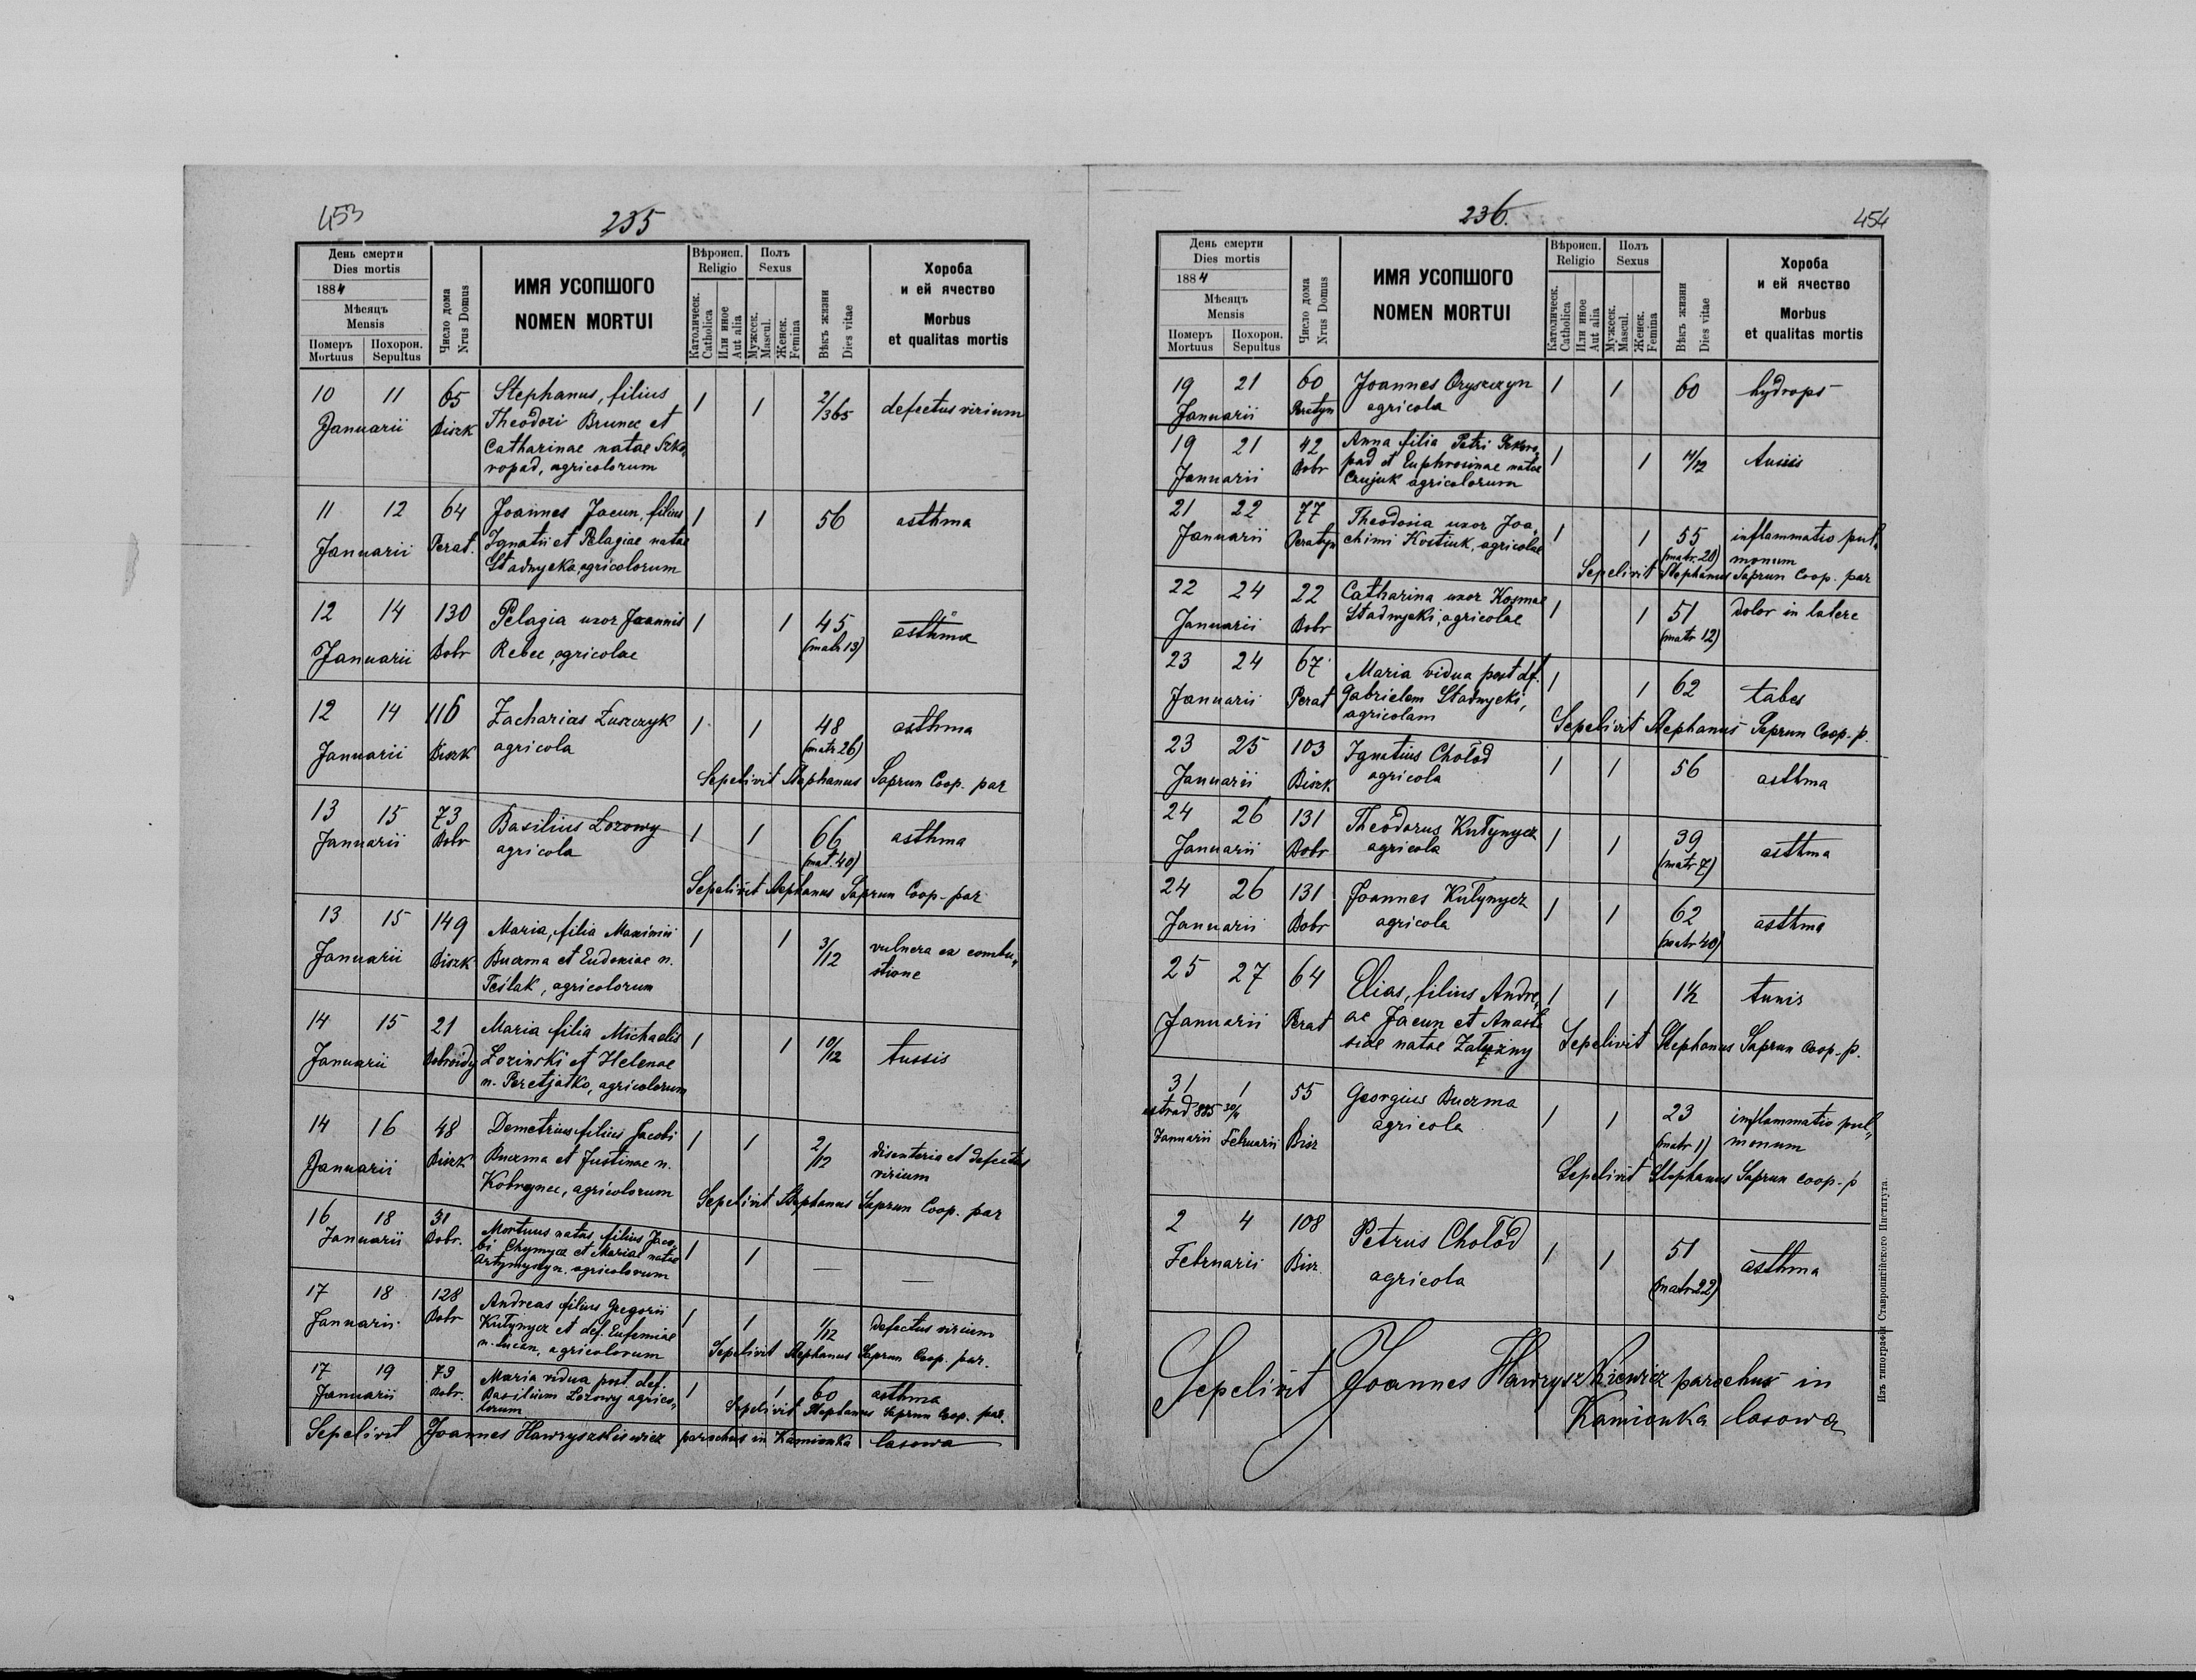 453
235
День смерти
Dies mortis
1884
Мѣсяцъ
Mensis
Померъ Похорон.
Mortuus Sepultus
Число дома
Nrus Domus
ИМЯ УСОПШОГО
NOMEN MORTUI
Вѣроисп.
Religio
Католическ.
Catholica
Или иное
Aut alia
Полъ
Sexus
Мужеск.
Mascul.
Женск.
Femina
Вѣкъ жизни
Dies vitae
Хороба
и ей ячество
Morbus
et qualitas mortis
10 11 65 Stephanus, filius 1 1 2/365 defectus virium
Januarii Biszk Theodori Brunec et
Catharinae natae Szko
ropad, agricolorum
11 12 64 Joannes Jacun, filius 1 1 56 asthma
Januarii Perat. Ignatii et Pelagiae natae
Stadnycka, agricolorum
12 14 130 Pelagia uxor Joannis 1 1 45 asthma
Januarii Bobr Rebec, agricolae (matr 19)
12 14 116 Zacharias Łuszczyk 1 1 48 asthma
Januarii Biszk agricola (matr 26)
Sepelivit Stephanus Saprun Coop. par
13 15 73 Basilius Lozowy 1 1 66 asthma
Januarii Bobr agricola (mat. 40)
Sepelivit Stephanus Saprun Coop. par
13 15 149 Maria, filia Maximi 1 1 3/12 vulnera ex combu„
Januarii Biszk Buczma et Eudoxiae n. stione
Teślak, agricolorum
14 15 21 Maria filia Michaelis 1 1 10/12 tussis
Januarii Lozinski et Helenae
n. Peretjatko, agricolorum
14 16 48 Demetrius filius Jacobi 1 1 2/12 disenteria et defectus
Januarii Biszk Buczma et Justinae n. virium
Kobrynec, agricolorum
Sepelivit Stephanus Saprun Coop. par
16 18 31 Mortuus natus, filius Jaco„ 1 1 — —
Januarii Bobr. bi Chymycz et Mariae natae
agricolorum
17 18 128 Andreas filius Gregorii 1 1 1/12 defectus virium
Januarii Bobr Kutynycz et def. Eufemiae
n. Lucan, agricolorum Sepelivit Stephanus Saprun Coop. par.
17 19 73 Maria vidua post def. 1 1 60 asthma
Januarii Bobr. Basilium Lozowy agrico„
lorum Sepelivit Stephanus Saprun Coop. par.
Sepelivit Joannes Hawryszkiewicz parochus in Kamionka lasowa
236.
454
День смерти
Dies mortis
1884
Мѣсяцъ
Mensis
Померъ Похорон.
Mortuus Sepultus
Число дома
Nrus Domus
ИМЯ УСОПШОГО
NOMEN MORTUI
Вѣроисп.
Religio
Католическ.
Catholica
Или иное
Aut alia
Полъ
Sexus
Мужеск.
Mascul.
Женск.
Femina
Вѣкъ жизни
Dies vitae
Хороба
и ей ячество
Morbus
et qualitas mortis
19 21 60 Joannes Oryszczyn 1 1 60 hydrops
Januarii Peratyn agricola
19 21 42 Anna filia Petri Szkoro„ 1 1 11/12 tussis
Januarii Bobr pad et Euphrosinae natae
Czujuk agricolorum
21 22 77 Theodosia uxor Joa„ 1 1 55 inflammatio pul„
Januarii Peratyn chimi Kostiuk, agricolae (matr. 20) monum
Sepelivit Stephanus Saprun Coop. par
22 24 22 Catharina uxor Kosmae 1 1 51 dolor in latere
Januarii Bobr Stadnycki, agricolae (matr 12)
23 24 67 Maria vidua post df. 1 1 62 tabes
Januarii Perat Gabrielem Stadnycki,
agricolam Sepelivit Stephanus Saprun Coop. p.
23 25 103 Ignatius Chołod 1 1 56 asthma
Januarii Biszk agricola
24 26 131 Theodorus Kutynycz 1 1 39 asthma
Januarii Bobr agricola (matr 7)
24 26 131 Joannes Kutynycz 1 1 62 asthma
Januarii Bobr agricola (matr 40)
25 27 64 Elias, filius Andre„ 1 1 1½ tussis
Januarii Perat ae Jacun et Anasta
siae natae Załużny Sepelivit Stephanus Saprun Coop. p.
31 1 55 Georgius Buczma 1 1 23 inflammatio pul„
extrad 885 30/4 agricola (matr 1) monum
Januarii Februarii Bisz
Sepelivit Stephanus Saprun coop. p
2 4 108 Petrus Chołod 1 1 51 asthma
Februarii Bisz. agricola (matr 22)
Sepelivit Joannes Hawryszkiewicz parochus in
Kamionka lasowa
Изъ типографіи Ставропигійского Института.